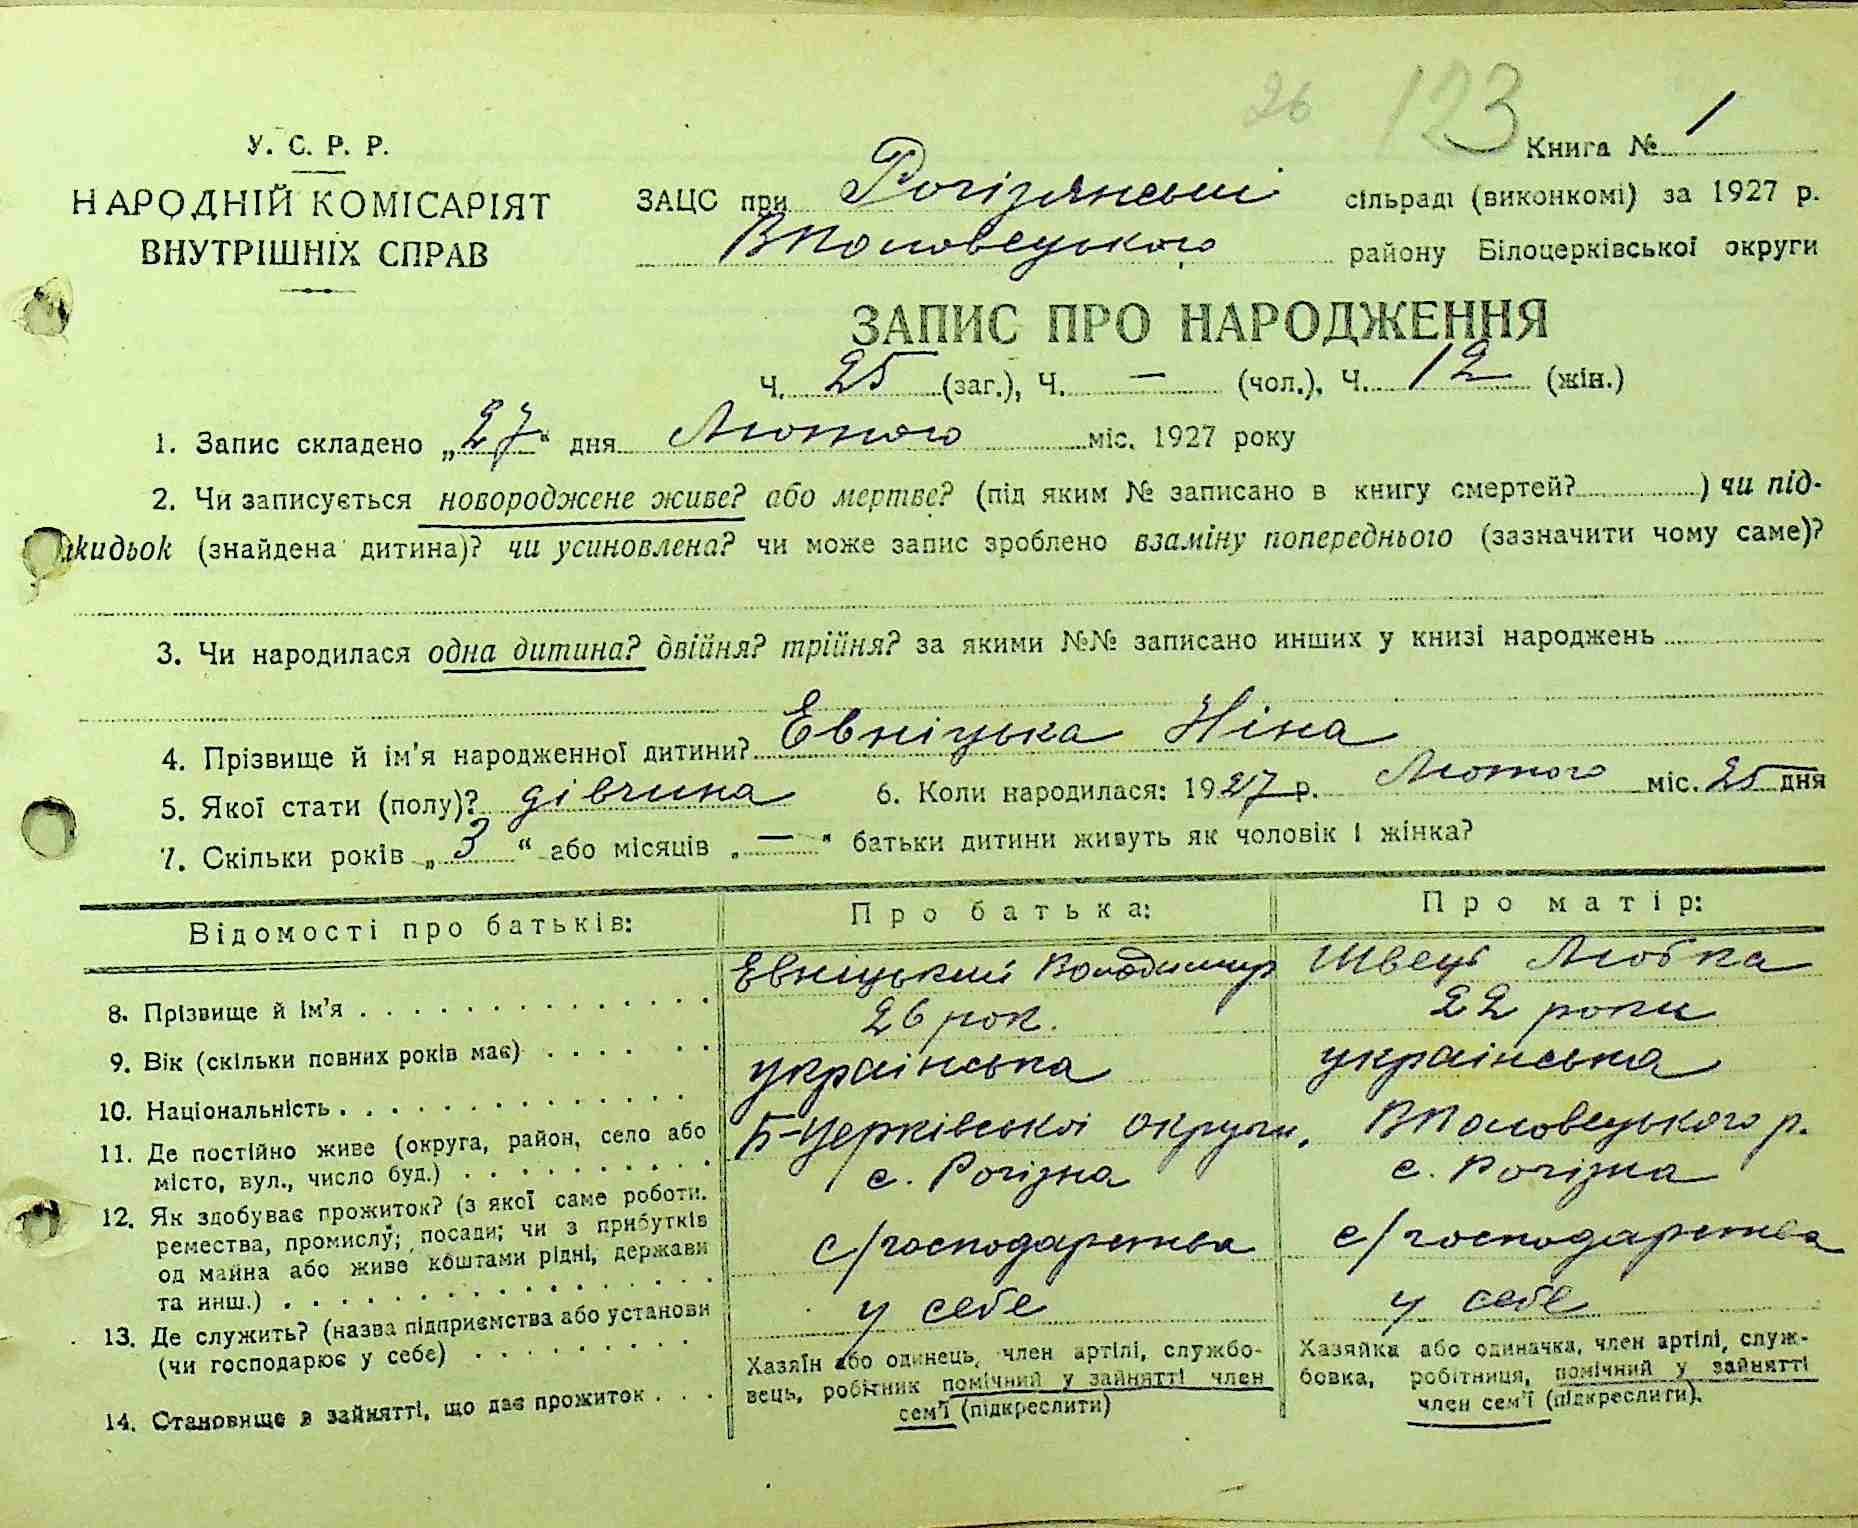 26 123
Книга № 1
У. С. Р. Р.
НАРОДНІЙ КОМІСАРІЯТ
ВНУТРІШНІХ СПРАВ
ЗАЦС при Рогізянські сільраді (виконкомі) за 1927 р.
ВПоловецького району Білоцерківської округи
ЗАПИС ПРО НАРОДЖЕННЯ
Ч. 25 (заг.), Ч. — (чол.), Ч. 12 (жін.)
1. Запис складено „27“ дня Лютого міс. 1927 року
2. Чи записується новороджене живе? або мертве? (під яким № записано в книгу смертей? ) чи під-
кидьок (знайдена дитина)? чи усиновлена? чи може запис зроблено взаміну попереднього (зазначити чому саме)?
3. Чи народилася одна дитина? двійня? трійня? за якими №№ записано инших у книзі народжень
4. Прізвище й ім'я народженної дитини? Евніцька Ніна
5. Якої стати (полу)? дівчина 6. Коли народилася: 1927 р. Лютого міс. 25 дня
7. Скільки років „3“ або місяців „—“ батьки дитини живуть як чоловік і жінка?
Відомості про батьків: Про батька: Про матір:
8. Прізвище й ім'я Евніцький Володимир Швець Любка
9. Вік (скільки повних років має) 26 рок. 22 роки
10. Національність українська українська
11. Де постійно живе (округа, район, село або Б-Церківської округи, ВПоловецького р.
місто, вул., число буд.) с. Рогізна с. Рогізна
12. Як здобуває прожиток? (з якої саме роботи.
ремества, промислу; посади; чи з прибутків
од майна або живе коштами рідні, держави с/господарства с/господарства
та инш.)
13. Де служить? (назва підприємства або установи у себе у себе
(чи господарює у себе)
14. Становище в зайнятті, що дає прожиток
Хазяїн або одинець, член артілі, службо-
вець, робітник помічний у зайнятті член
сем'ї (підкреслити)
Хазяйка або одиначка, член артілі, служ-
бовка, робітниця, помічний у зайнятті
член сем'ї (підкреслити).